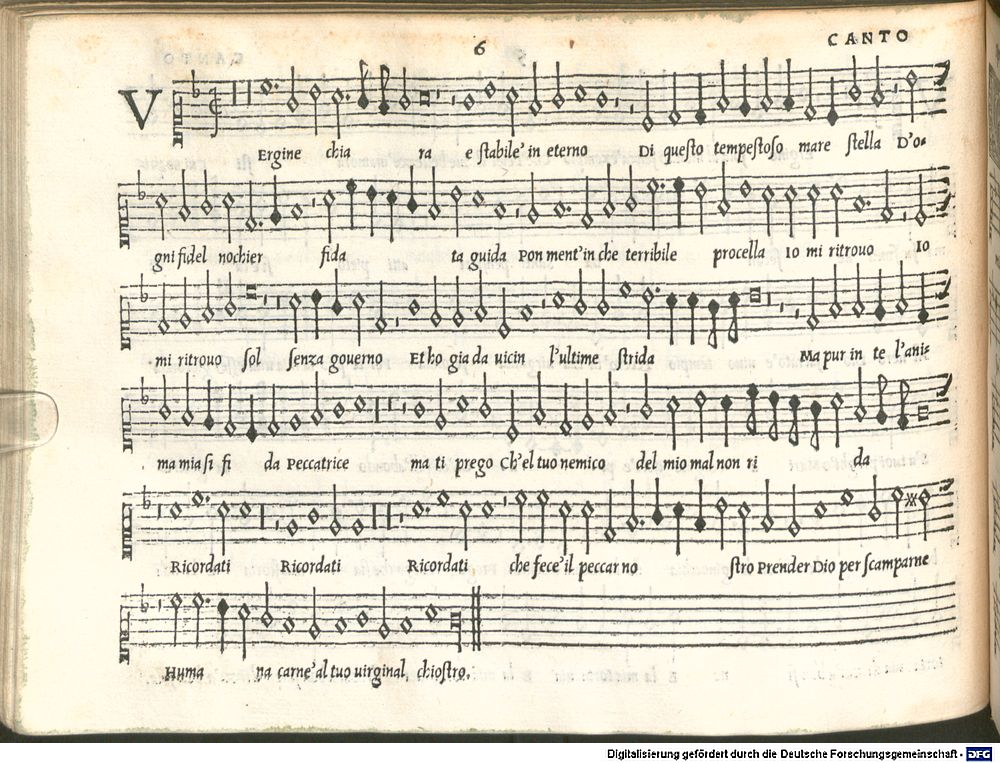 6
CANTO
V
Ergine chia ra e stabile' in eterno Di questo tempestoso mare stella D'o-
gni fidel nochier fida ta guida Pon ment' in che terribile procella IO mi ritrouo IO
mi ritrouo sol senza gouerno Et ho gia da uicin l'ultime strida Ma pur in te l'ani=
ma mia si fi da Peccatrice ma ti prego Ch'el tuo nemico del mio mal non ri da
Ricordati Ricordati Ricordati che fece' il peccar no stro Prender Dio per scamparne
Huma na carne' al tuo uirginal chiostro.
Digitalisierung gefördert durch die Deutsche Forschungsgemeinschaft - DFG